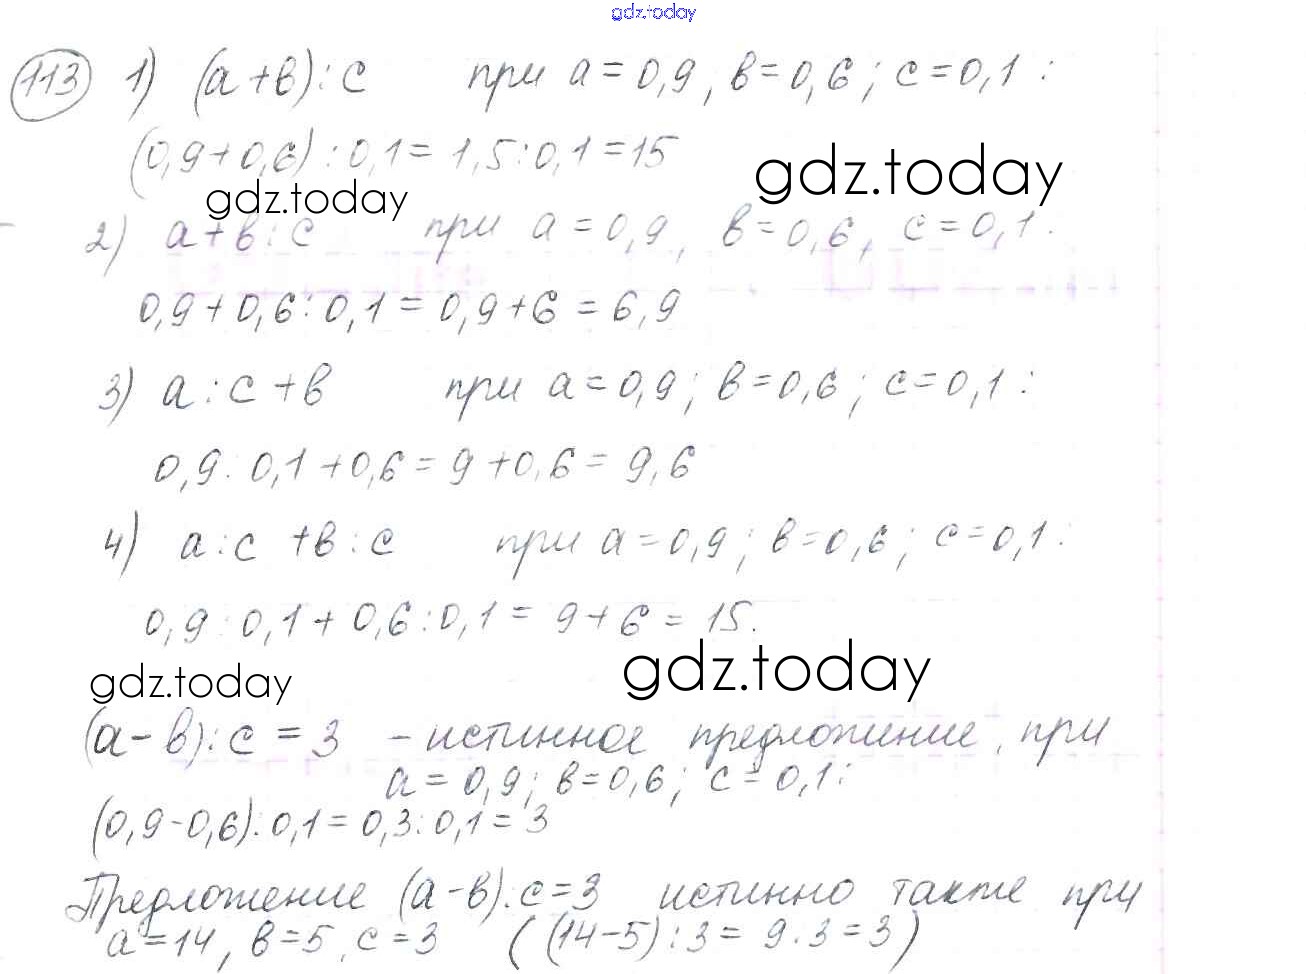 gdz.today
113 1) (а+в):с при а=0,9, в=0,6; с=0,1:
(0,9+0,6):0,1=1,5:0,1=15
gdz.today
gdz.today
2) а+в:с при а=0,9, в=0,6, с=0,1:
0,9+0,6:0,1=0,9+6=6,9
3) а:с+в при а=0,9; в=0,6; с=0,1:
0,9:0,1+0,6=9+0,6=9,6
4) а:с+в:с при а=0,9; в=0,6; с=0,1:
0,9:0,1+0,6:0,1=9+6=15.
gdz.today
gdz.today
(а-в):с=3 - истинное предложение, при
а=0,9; в=0,6; с=0,1:
(0,9-0,6):0,1=0,3:0,1=3
Предложение (а-в):с=3 истинно также при
а=14, в=5, с=3 ((14-5):3=9:3=3)